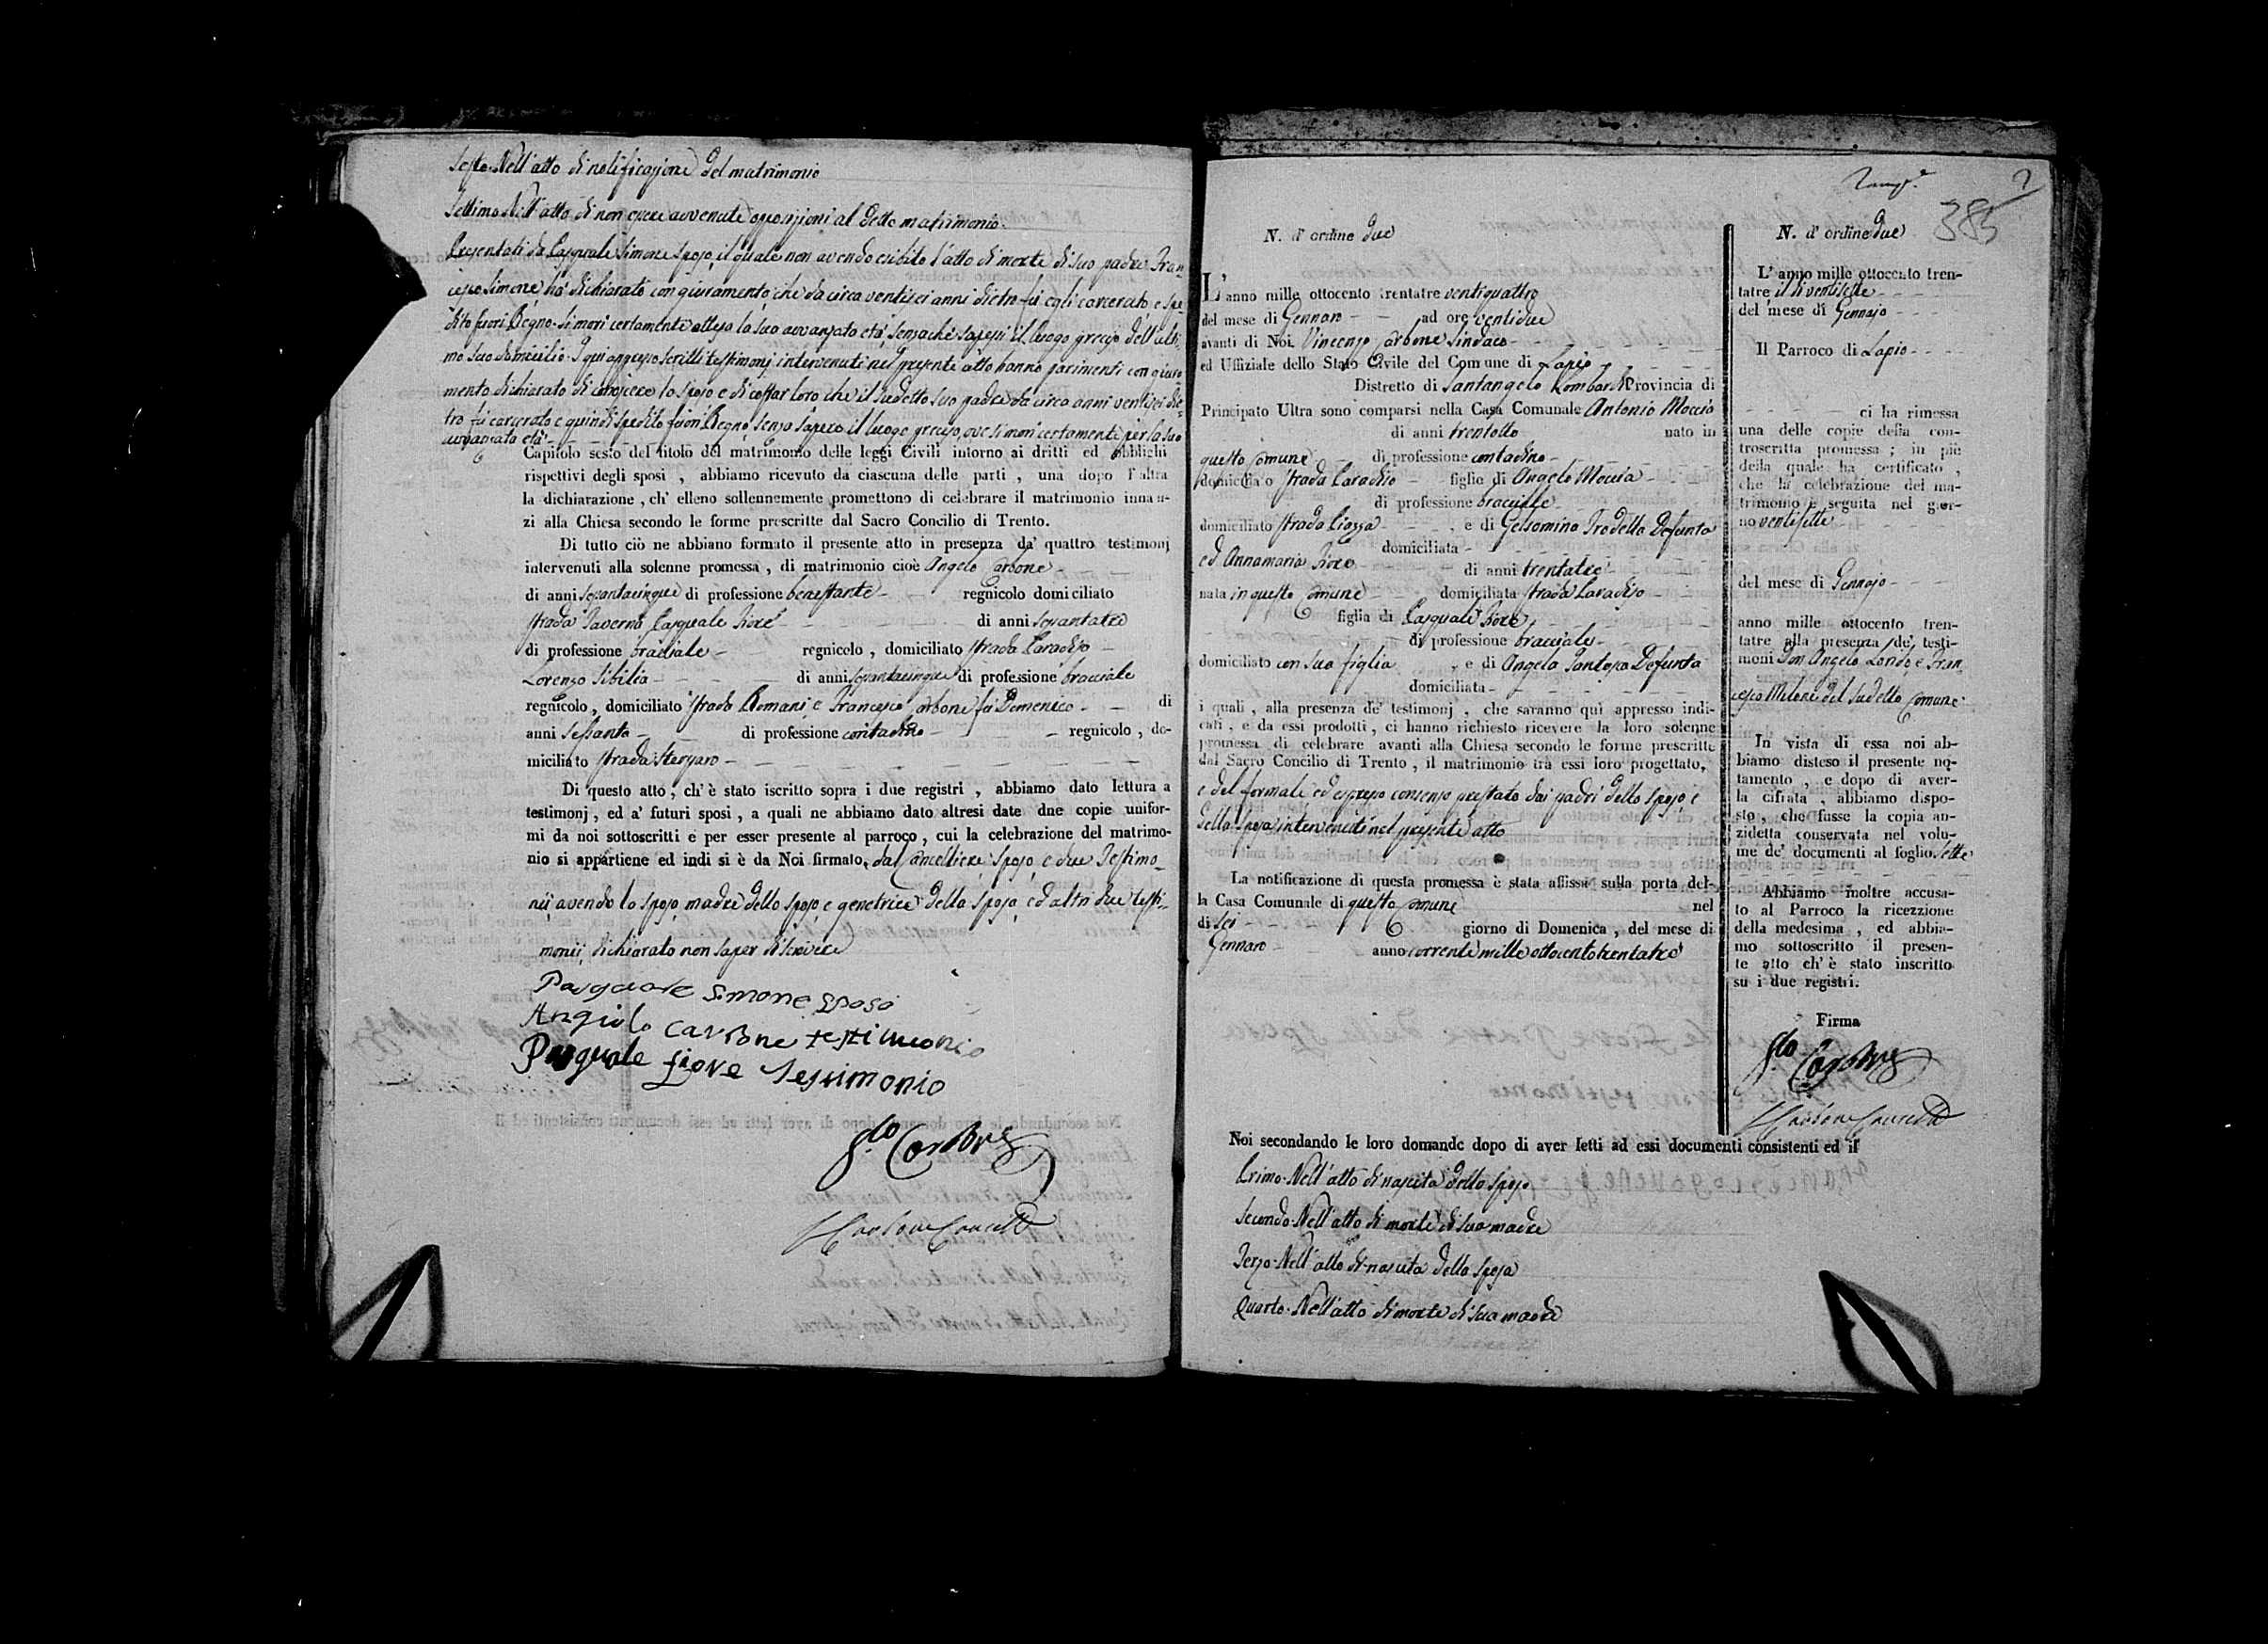 Sesto. Nell'atto di notificazione del matrimonio
Settimo. Nell'atto di non essere avvenute opposizioni al detto matrimonio.
Presentati da Pasquale Simone sposo, il quale non avendo esibito l'atto di morte di suo padre Fran-
cesco Simone, ha dichiarato con giuramento, che da circa ventisei anni dietro fù egli carcerato, e spe-
dito fuori Regno. Si morì certamente attesa la sua avvanzata età, senza che sapessi il luogo preciso dell'ulti-
mo suo domicilio. I qui appresso scritti testimonj intervenuti nel presente atto hanno parimenti con giura-
mento dichiarato di conoscere lo sposo e di costar loro che il sudetto suo padre da circa anni ventisei die-
tro fù carcerato e quindi spedito fuori Regno, senza sapere il luogo preciso, ove si morì certamente per la sua
avvanzata età -
Capitolo sesto del titolo del matrimonio delle leggi Civili intorno ai dritti ed obblighi
rispettivi degli sposi , abbiamo ricevuto da ciascuna delle parti , una dopo l'altra
la dichiarazione , ch' elleno sollennemente promettono di celebrare il matrimonio innan-
zi alla Chiesa secondo le forme prescritte dal Sacro Concilio di Trento.
Di tutto ciò ne abbiano formato il presente atto in presenza da' quattro testimonj
intervenuti alla solenne promessa , di matrimonio cioè Angelo Carbone -
di anni sessantacinque di professione benestante - regnicolo domiciliato
strada Taverna Pasquale Fiore - di anni sessantatre
di professione bracciale - regnicolo , domiciliato strada Paradiso -
Lorenzo Sibilia - di anni sessantacinque di professione bracciale
regnicolo , domiciliato strada Romani, e Francesco Carbone fu Domenico - di
anni sessanta - di professione contadino - regnicolo , do-
miciliato strada
Di questo atto , ch' è stato iscritto sopra i due registri , abbiamo dato lettura a
testimonj , ed a' futuri sposi , a quali ne abbiamo dato altresì date due copie unifor-
mi da noi sottoscritti e per esser presente al parroco , cui la celebrazione del matrimo-
nio si appartiene ed indi si è da Noi firmato, dal Cancelliere, sposo, e due Testimo-
nii avendo la sposa, madre dello sposo e genetrice della sposa, ed altri due testi-
monii, dichiarato non saper scrivere
Pasquale Simone sposo
Angiolo Carbone testimonio
Pasquale Fiore Testimonio
Carbone
Carbone Cancell.
385
N. d' ordine due
L'anno mille ottocento trentatre ventiquattro
del mese di Gennaro - ad ore ventidue
avanti di Noi Vincenzo Carbone Sindaco -
ed Uffiziale dello Stato Civile del Comune di Lapio -
Distretto di Santangelo Lombardi Provincia di
Principato Ultra sono comparsi nella Casa Comunale Antonio Moccia
di anni trentotto nato in
questo Comune - di professione contadino -
domiciliato strada Paradiso - figlio di Angelo Moccia -
di professione bracciale -
domiciliato strada Piazza - , e di Gelsomina Trodella Defunta
domiciliata -
ed Annamaria Fiore - di anni trentatre -
nata in questo Comune - domiciliata strada Paradiso -
figlia di Pasquale Fiore -
di professione bracciale -
domiciliato con sua figlia , e di Angela Santosa Defunta
domiciliata -
i quali , alla presenza de' testimonj , che saranno quì appresso indi-
cati , e da essi prodotti , ci hanno richiesto ricevere la loro solenne
promessa di celebrare avanti alla Chiesa secondo le forme prescritte
dal Sacro Concilio di Trento , il matrimonio trà essi loro progettato,
e del formale ed espresso consenso prestato dai padri dello sposo, e
della sposa intervenuti nel presente atto
La notificazione di questa promessa è stata affissa sulla porta del-
la Casa Comunale di questo Comune nel
dì sei - giorno di Domenica , del mese di
Gennaro - anno corrente mille ottocento trentatre
Noi secondando le loro domande dopo di aver letti ad essi documenti consistenti ed il
Primo. Nell'atto di nascita dello sposo
Secondo. Nell'atto di morte di sua madre
Terzo. Nell'atto di nascita della sposa
Quarto. Nell'atto di morte di sua madre
N. d' ordine due
L' anno mille ottocento tren-
tatre il dì ventisette -
del mese di Gennajo -
Il Parroco di Lapio -
ci ha rimessa
una delle copie della con-
troscritta promessa ; in piè
della quale ha certificato ,
che la celebrazione del ma-
trimonio è seguita nel gior-
no ventisette -
del mese di Gennajo -
anno mille ottocento tren-
tatre alla presenza de' testi-
moni Don Angelo e Fran-
cesco Milone del sudetto Comune.
In vista di essa noi ab-
biamo disteso il presente no-
tamento , e dopo di aver-
la cifrata , abbiamo dispo-
sto , che fusse la copia an-
zidetta conservata nel volu-
me de' documenti al foglio sette
Abbiamo inoltre accusa-
to al Parroco la ricezzione
della medesima , ed abbia-
mo sottoscritto il presen-
te atto ch' è stato inscritto
su i due registri.
Firma
Carbone
Carbone Cancell.